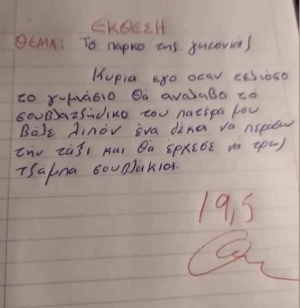 ΕΚΘΕΣΗ
ΘΕΜΑ: Το πάρκο της γειτονιάς
Κυρία εγό οταν τελιόσο
το γυμνάσιο θα αναλάβο τό
σουβλατζήδικο του πατέρα μου
Βάλε λιπόν ένα δέκα να περάσω
τήν τάξι και θα έρχεσε να τρως
τζάμπα σουβλάκια.
19,5